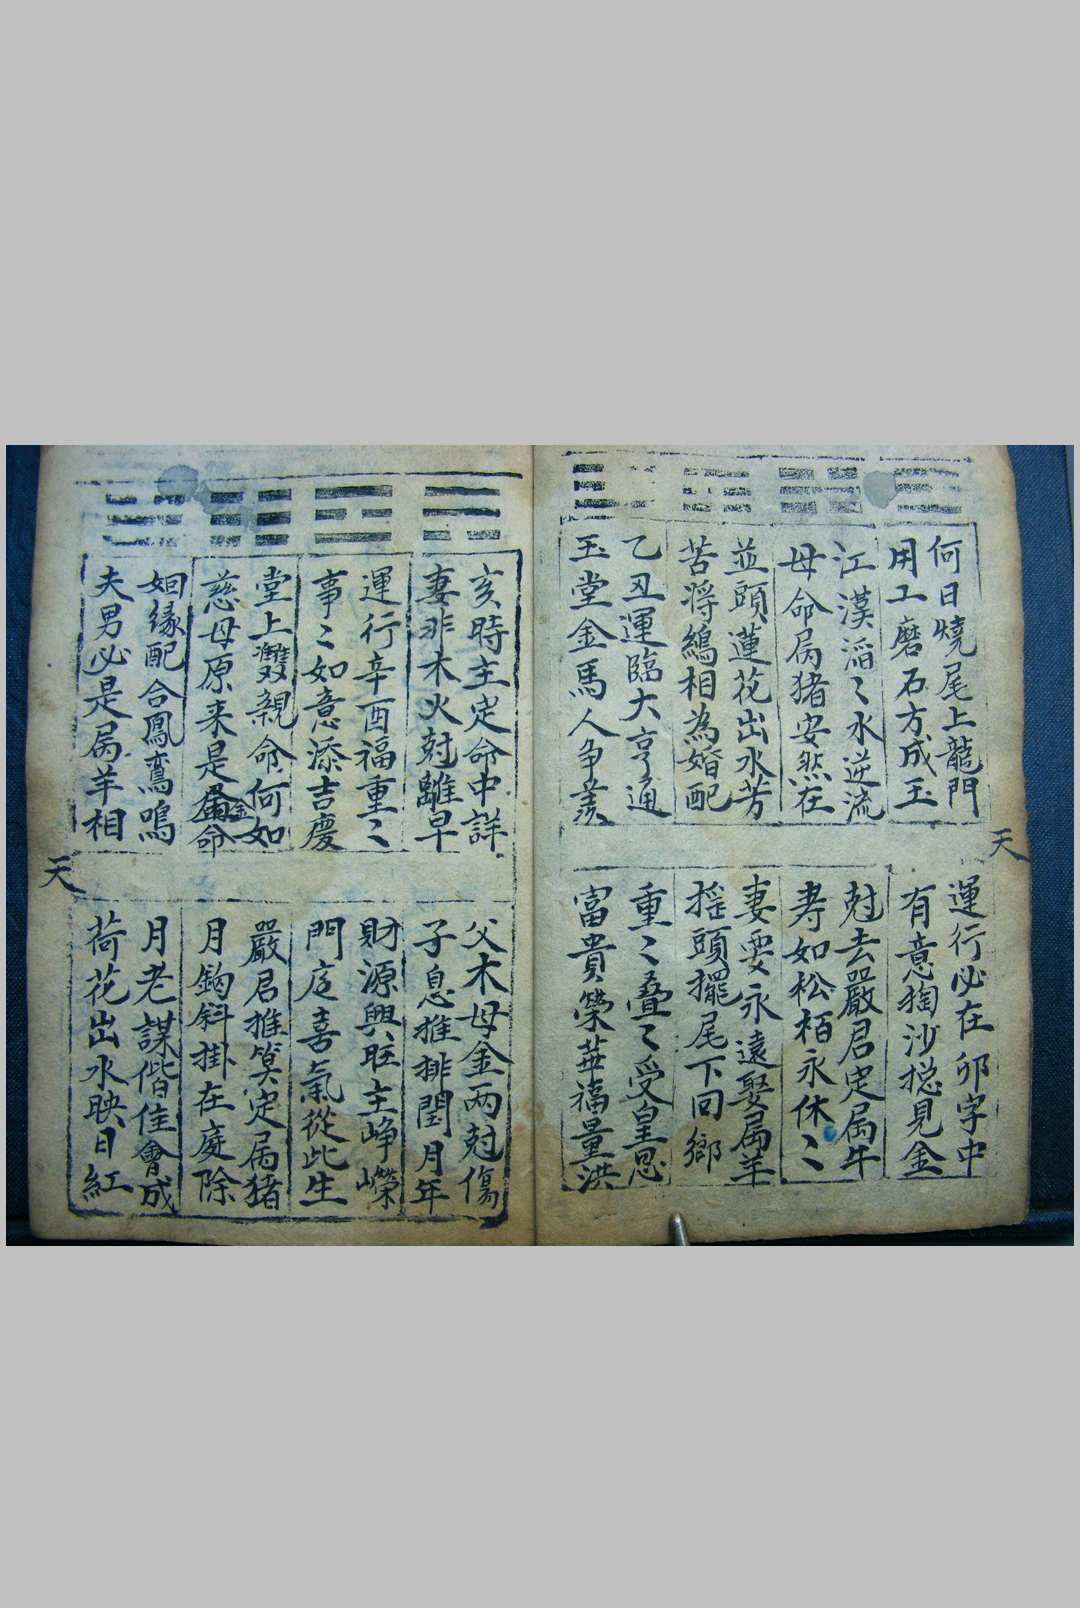 何日燒尾上龍門
運行必在卯字中
用工磨石方成玉
有意掏沙揔見金
江漢滔〻水逆流
尅去嚴君定属牛
母命属猪安然在
寿如松栢永休〻
並頭蓮花出水芳
妻要永遠娶属羊
苦將相為婚配
揺頭擺尾下回鄉
乙丑運臨大亨通
重〻叠〻受皇恩
玉堂金馬人争羨
富貴榮華福量洪
天
亥時主定命中詳
父木母金兩尅傷
妻非木火尅離早
子息推排閏月年
運行辛酉福重〻
財源興旺主崢嶸
事〻如意添吉慶
門庭喜氣從此生
堂上雙親命何如
嚴君推算定属猪
慈母原来是金命
月鈎斜掛在庭除
姻緣配合鳳鸞鳴
月老謀偕佳會成
夫男必是属羊相
荷花出水映日紅
天